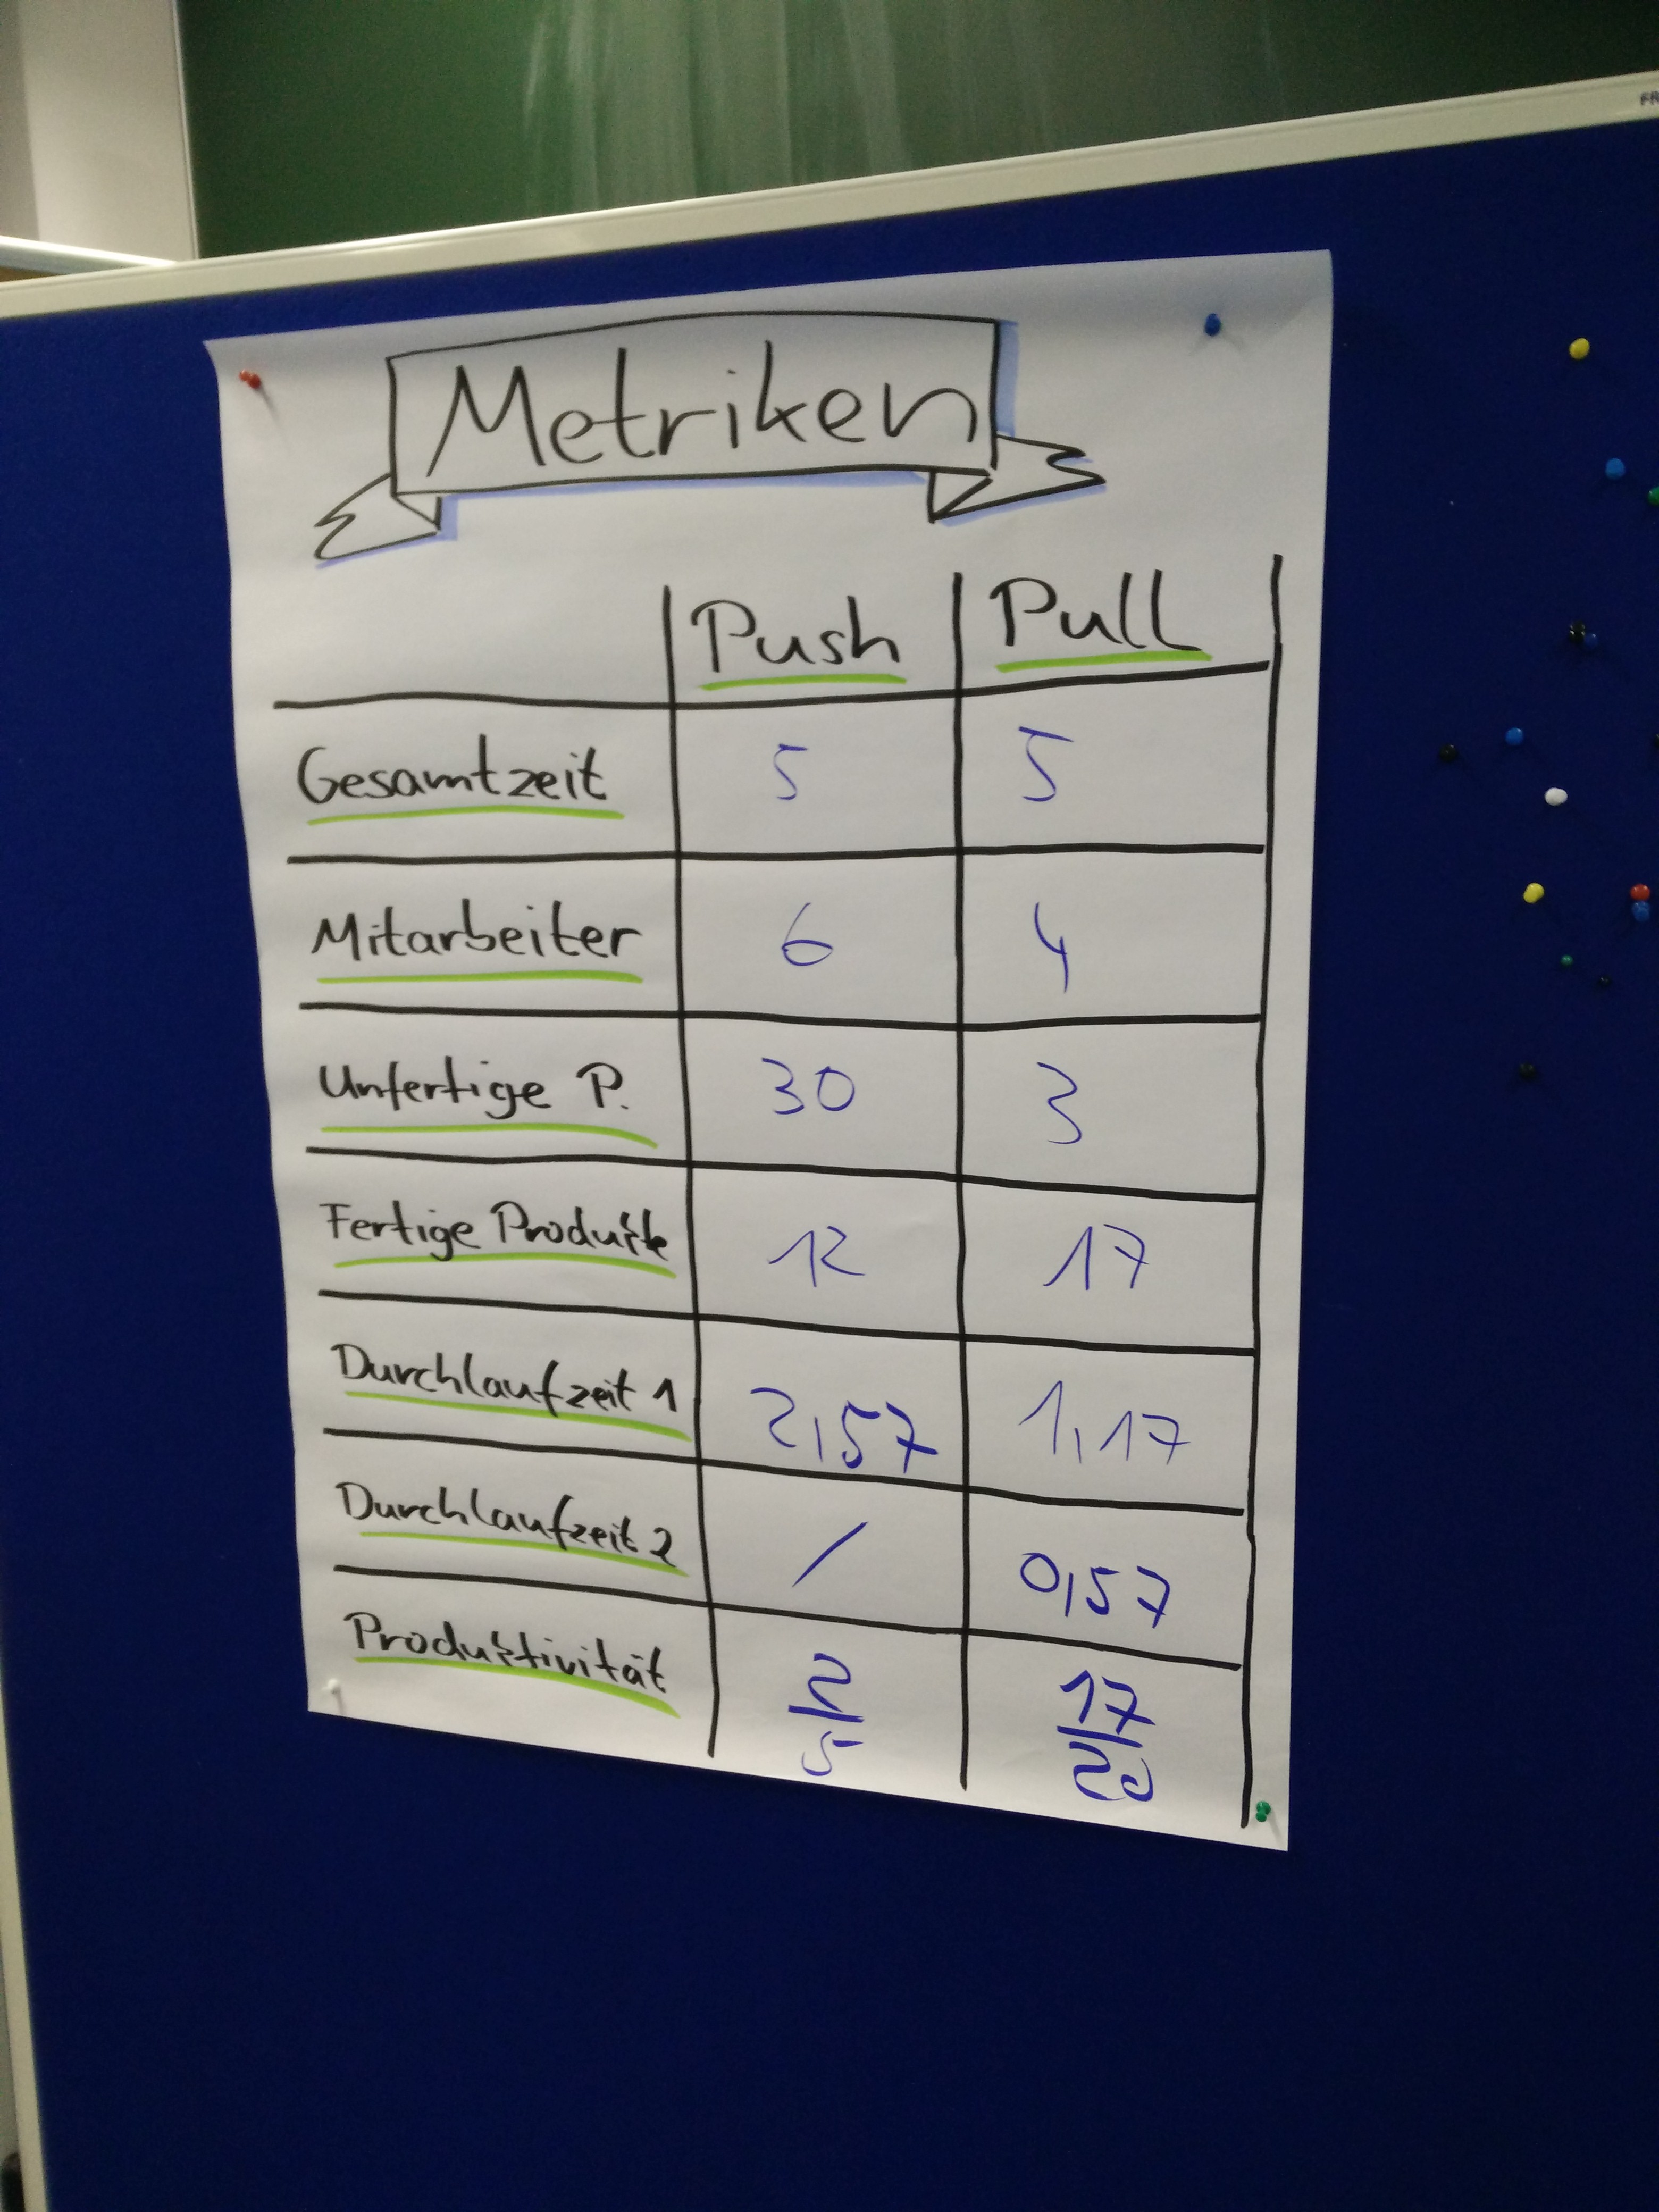 FR
Metriken
Push Pull
Gesamtzeit 5 5
Mitarbeiter 6 4
Unfertige P. 30 3
Fertige Produkte 12 17
Durchlaufzeit 1 2,57 1,17
Durchlaufzeit 2 / 0,57
Produktivität 2/5 17/20